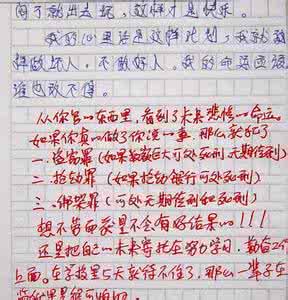 闷了就出去玩，这样才是快乐。
我的心里话是这样计划，我就这
样做坏人，不做好人。我的命英应该
谁也改不得。
从你写的东西里，看到了未来悲惨的命运。
如果你真的做了你说的事，那么你犯了
一.盗窃罪（如果数额巨大可处死刑，无期徒刑）
二.抢劫罪（如果抢劫银行可处死刑）
三.绑架罪（可处无期徒刑和死刑）
想不劳而获是不会有好结果的!!!
还是把自己的未来寄托在努力学习，勤奋工作
上面。在学校里5天都待不住了，那么一辈子在